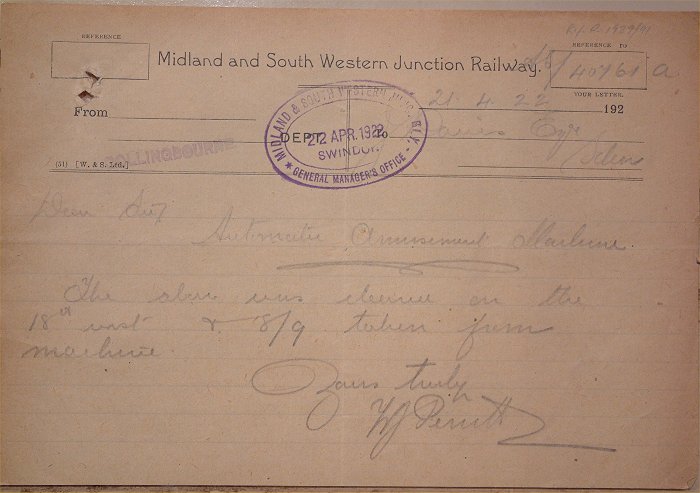 REFERENCE
REFERENCE TO
Midland and South Western Junction Railway.
40761 A
YOUR LETTER
21.4.22 192
From
DEPT. To
MIDLAND & SOUTH WESTERN JUNC. RLY.
22 APR. 1922
SWINDON
★ GENERAL MANAGER'S OFFICE
Davies Esqr
COLLINGBOURNE
(51) [W. & S. Ltd.]
Dear Sir
Automatic Amusement Machine.
The above was cleared on the
18th inst & 8/9 taken from
machine.
Yours truly